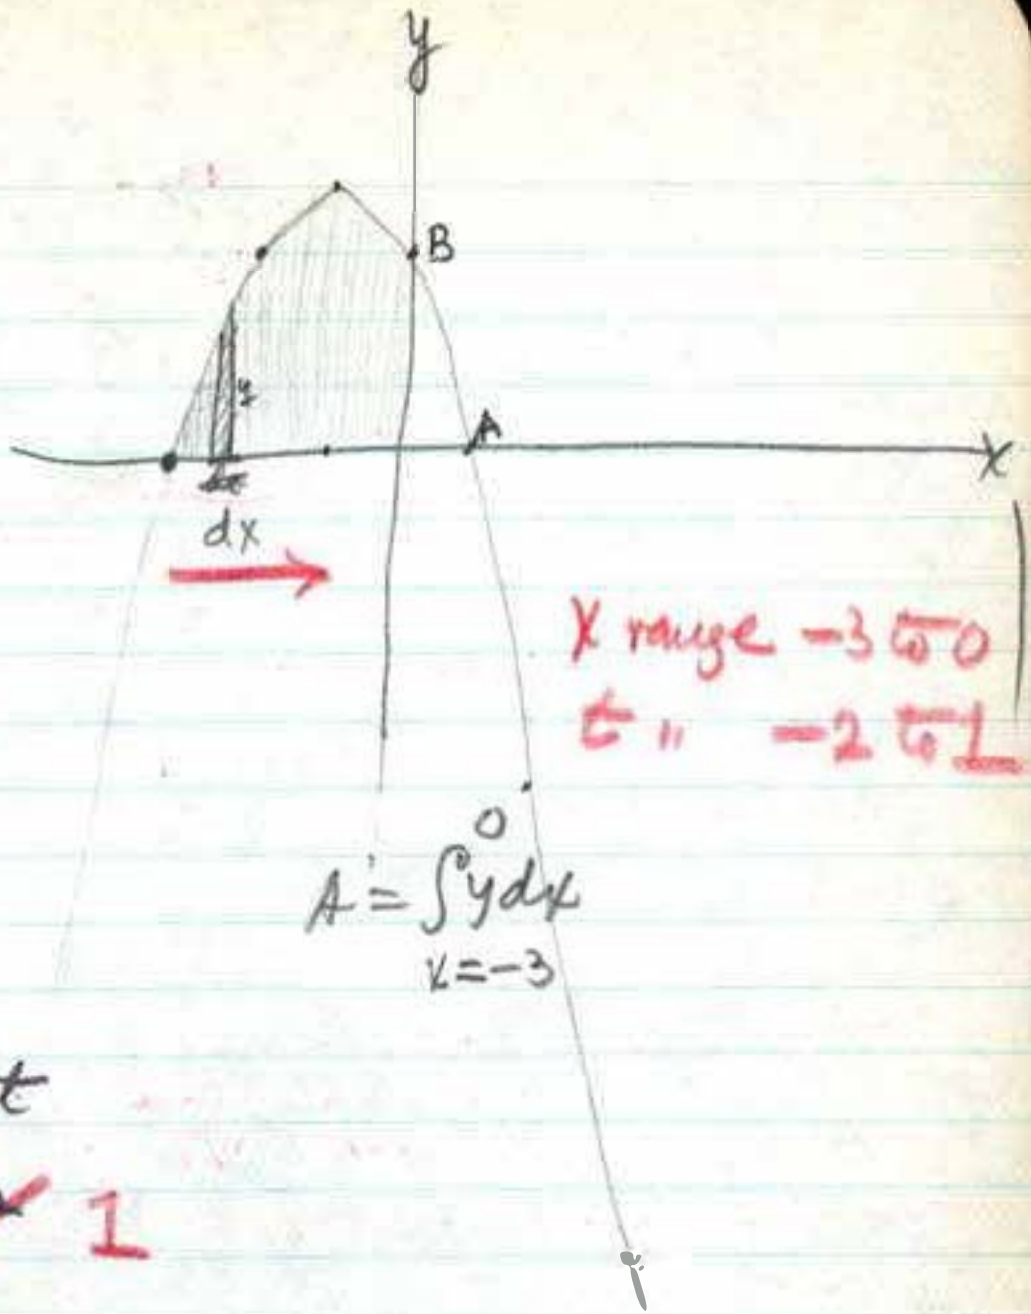 y
B
y
A
x
dx
X range -3 to 0
t " -2 to 1
0
A = ∫ y dx
x = -3
t
✓ 1